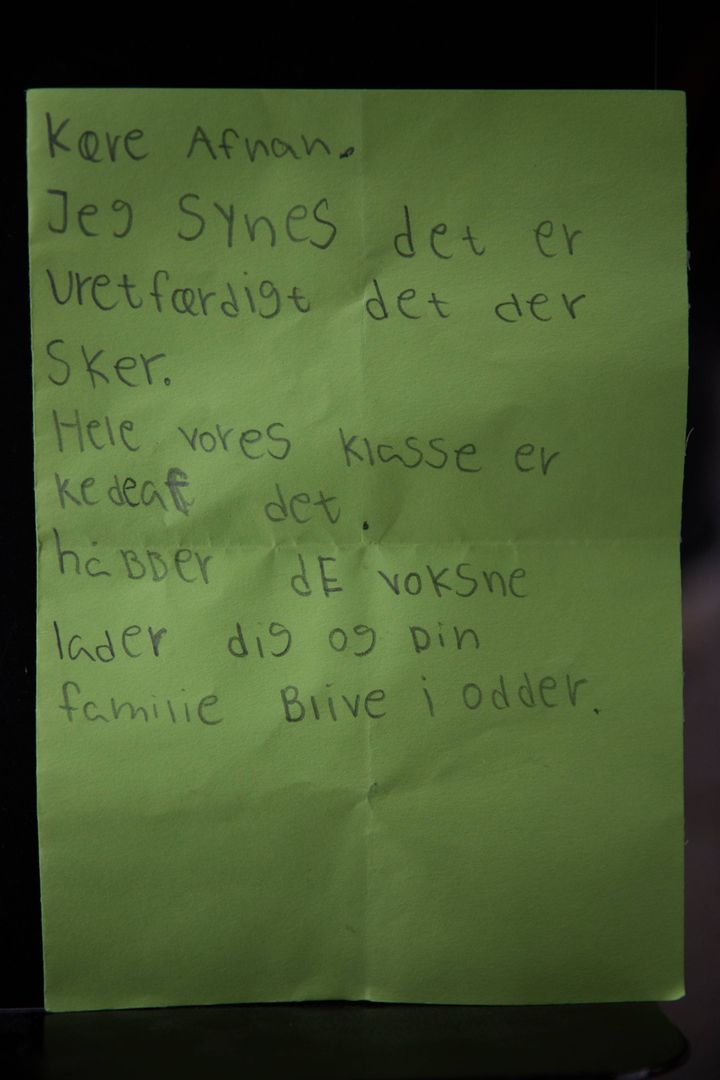 Kære Afnan.
Jeg SYnes det er
Uretfærdigt det der
Sker.
Hele vores klasse er
kedeaf det.
håBBer dE voksne
lader dig og Din
familie Blive i odder.